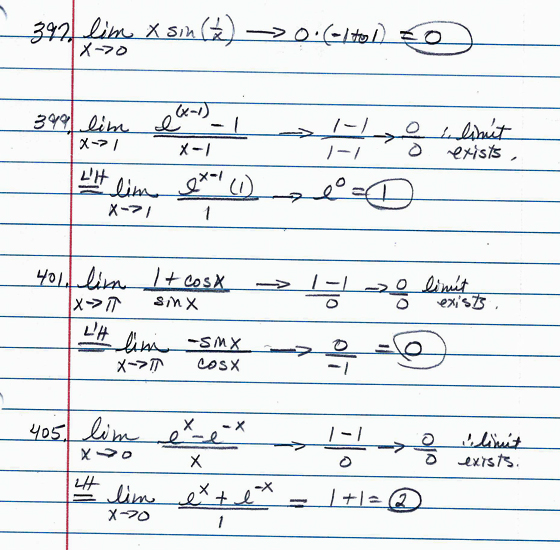 397. lim x→0 x sin(1/x) → 0·(-1 to 1) = 0
399. lim x→1 (e^(x-1) - 1)/(x-1) → (1-1)/(1-1) → 0/0 ∴ limit exists.
L'H = lim x→1 (e^(x-1) (1))/1 → e^0 = 1
401. lim x→π (1 + cosx)/(sinx) → (1-1)/0 → 0/0 limit exists.
L'H = lim x→π (-sinx)/(cosx) → 0/(-1) = 0
405. lim x→0 (e^x - e^-x)/x → (1-1)/0 → 0/0 ∴ limit exists.
L'H = lim x→0 (e^x + e^-x)/1 = 1+1 = 2